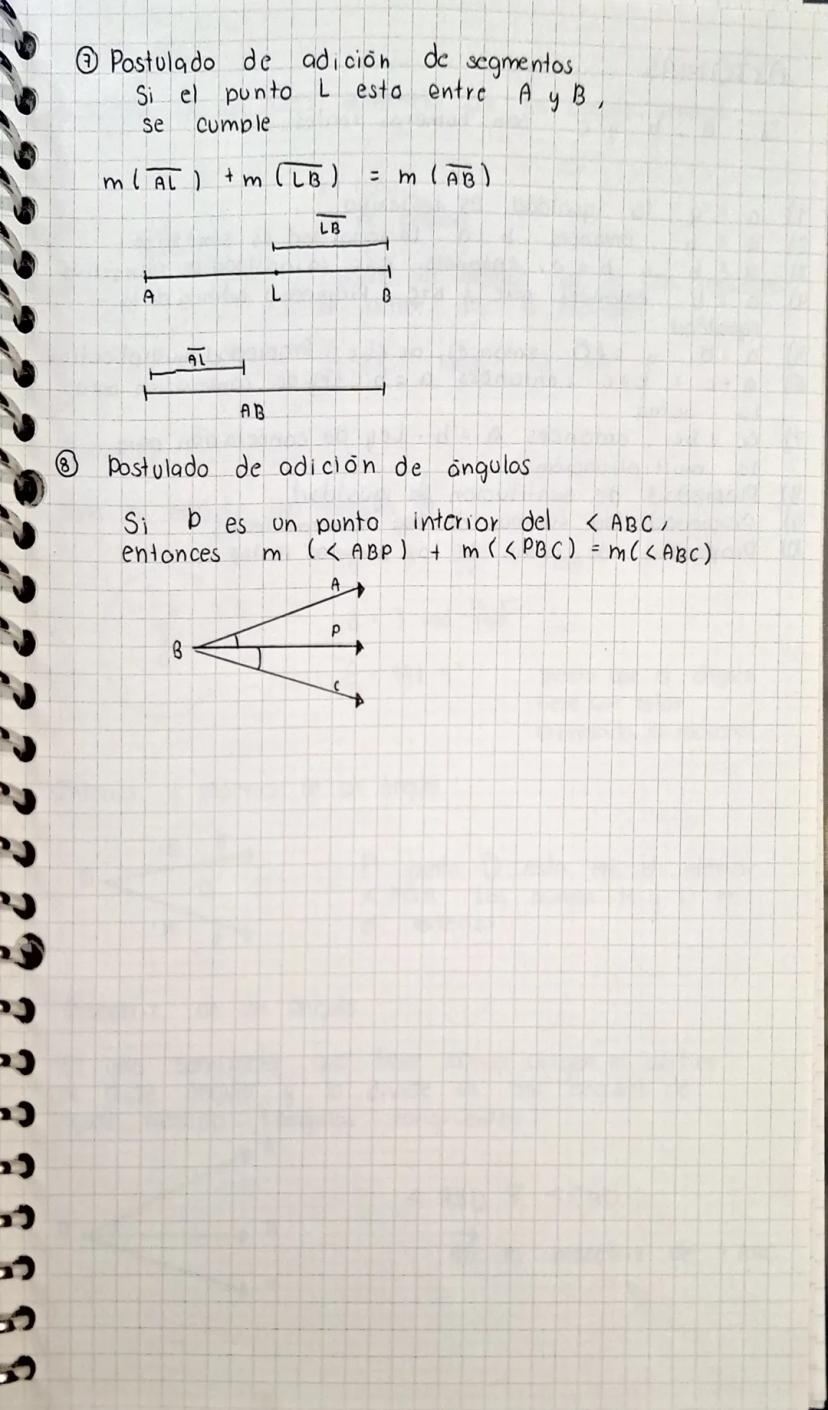 ⑦ Postulado de adición de segmentos
Si el punto L esta entre A y B,
se cumple
m(A̅L̅) + m(L̅B̅) = m(A̅B̅)
L̅B̅
A L B
A̅L̅
AB
⑧ Postulado de adición de ángulos
Si P es un punto interior del <ABC,
entonces m (<ABP) + m(<PBC) = m(<ABC)
A
P
B
C